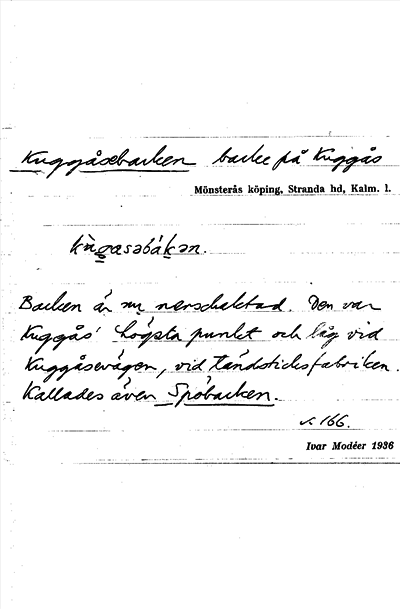 Kuggåsebacken backe på Kuggås
Mönsterås köping, Stranda hd, Kalm. l.
kùgasəbákən.
Backen är nu nerschaktad. Den var
Kuggås' högsta punkt och låg vid
Kuggåsevägen, vid tändsticksfabriken.
Kallades även Spöbacken.
s. 166.
Ivar Modéer 1936